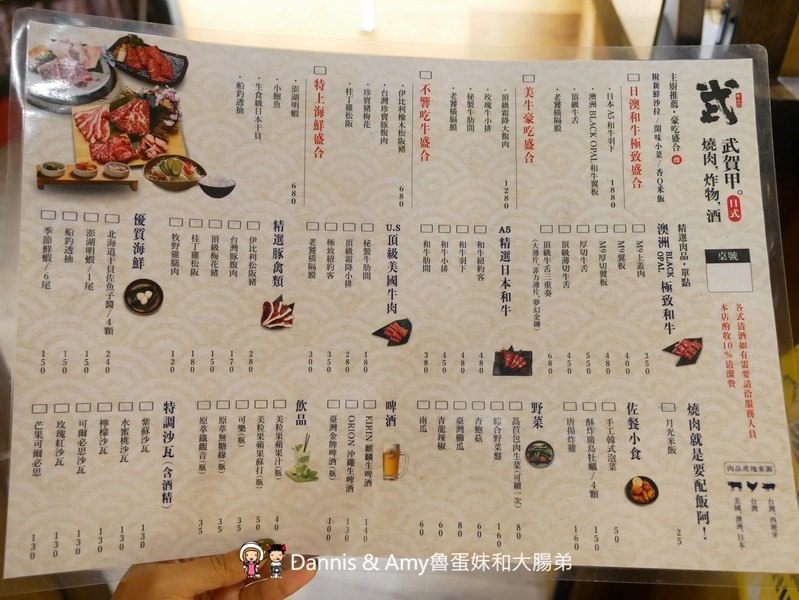 武
武賀甲。日式
燒肉,炸物,酒
桌號
各式清酒如有需要請洽服務人員
本店酌收10%清潔費
主廚推薦・豪吃盛合
附新鮮沙拉/開味小菜/香Q米飯
日澳和牛極致盛合
・日本A5和牛羽下 1880
・澳洲BLACK OPAL和牛翼板
・頂級牛舌
・老饕橫隔膜
美牛豪吃盛合
・頂級霜降大腹肉 1280
・玫瑰牛小排
・秘製牛肋間
・老饕橫隔膜
不饗吃牛盛合
・伊比利橡木松阪豬 680
・台灣珍寶豚腹肉
・珍寶豬梅花
・桂丁雞松阪
特上海鮮盛合
・澎湖明蝦 680
・小鮑魚
・生食級日本干貝
・船釣透抽
精選肉品・單點
澳洲 BLACK OPAL 極致和牛
M9上蓋肉 350
M9翼板 400
M9厚切翼板 480
厚切牛舌 550
頂級薄切牛舌 450
頂級牛舌三重奏 680
(大薄片,菲力薄片,夢幻金磚)
A5精選日本和牛
和牛紐約客 480
和牛羽下 480
和牛小排 450
和牛肋間 380
U.S頂級美國牛肉
秘製牛肋間 180
頂級霜降小排 280
極致紐約客 350
老饕橫隔膜 300
精選豚禽類
伊比利松阪豬 280
台灣豚腹肉 170
頂級梅花豬 150
桂丁雞松阪 180
牧野雞腿肉 120
優質海鮮
北海道干貝佐魚子醬/4顆 240
澎湖明蝦/1尾 150
船釣透抽 150
季節鮮蝦/6尾 150
燒肉就是要配飯阿!
月光米飯 25
肉品產地來源
台灣,西班牙
台灣
美國,澳洲,日本
佐餐小食
手工韓式泡菜 50
酥炸廣島牡蠣/4顆 160
唐揚炸雞 160
野菜
萵苣包肉生菜(可續一次) 80
綜合野菜盤 160
杏鮑菇 60
臺灣櫛瓜 80
青龍辣椒 60
南瓜 60
啤酒
KIRIN 麒麟生啤酒 140
ORION 沖繩生啤酒 130
臺灣金牌啤酒(瓶) 100
飲品
美粒果蘋果汁(瓶) 40
美粒果蘋果蘇打(瓶) 50
可樂(瓶) 35
原萃無糖綠(瓶) 35
原萃鐵觀音(瓶) 35
特調沙瓦(含酒精)
紫蘇沙瓦 130
水蜜桃沙瓦 130
檸檬沙瓦 130
可爾必思沙瓦 130
玫瑰紅沙瓦 130
芒果可爾必思 130
Dannis & Amy魯蛋妹和大腸弟